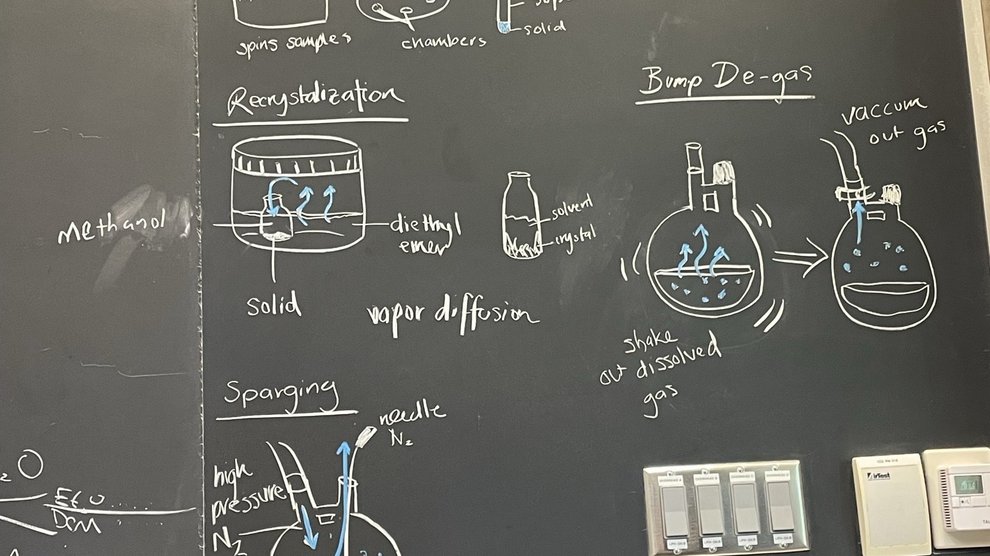 spins samples
chambers
solid
Recrystalization
methanol
diethyl
emer
solid
solvent
crystal
vapor diffusion
Bump De-gas
vaccum
out gas
shake
out dissolved
gas
Sparging
needle
N₂
high
pressure
N₂
₂O
DCM